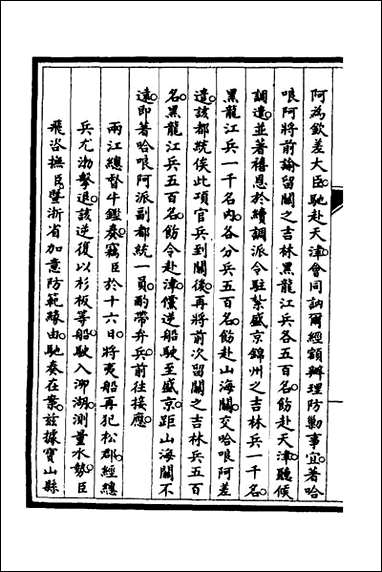 阿為欽差大臣馳赴天津會同訥爾經額辦理防勦事宜著哈
哴阿將前諭留關之吉林黑龍江兵各五百名飭赴天津聽候
調遣並著禧恩於續調派令駐紮盛京錦州之吉林兵一千名
黑龍江兵一千名內各分兵五百名飭赴山海關交哈哴阿差
遣該都統俟此項官兵到關後再將前次留關之吉林兵五百
名黑龍江兵五百名飭令赴津儻逆船駛至盛京距山海關不
遠即著哈哴阿派副都統一員酌帶弁兵前往接應
兩江總督牛鑑奏竊臣於十六日將夷船再犯松郡經總
兵尤渤擊退該逆復以杉板等船駛入泖湖測量水勢臣
飛咨撫臣曁浙省加意防範緣由馳奏在案茲據寶山縣